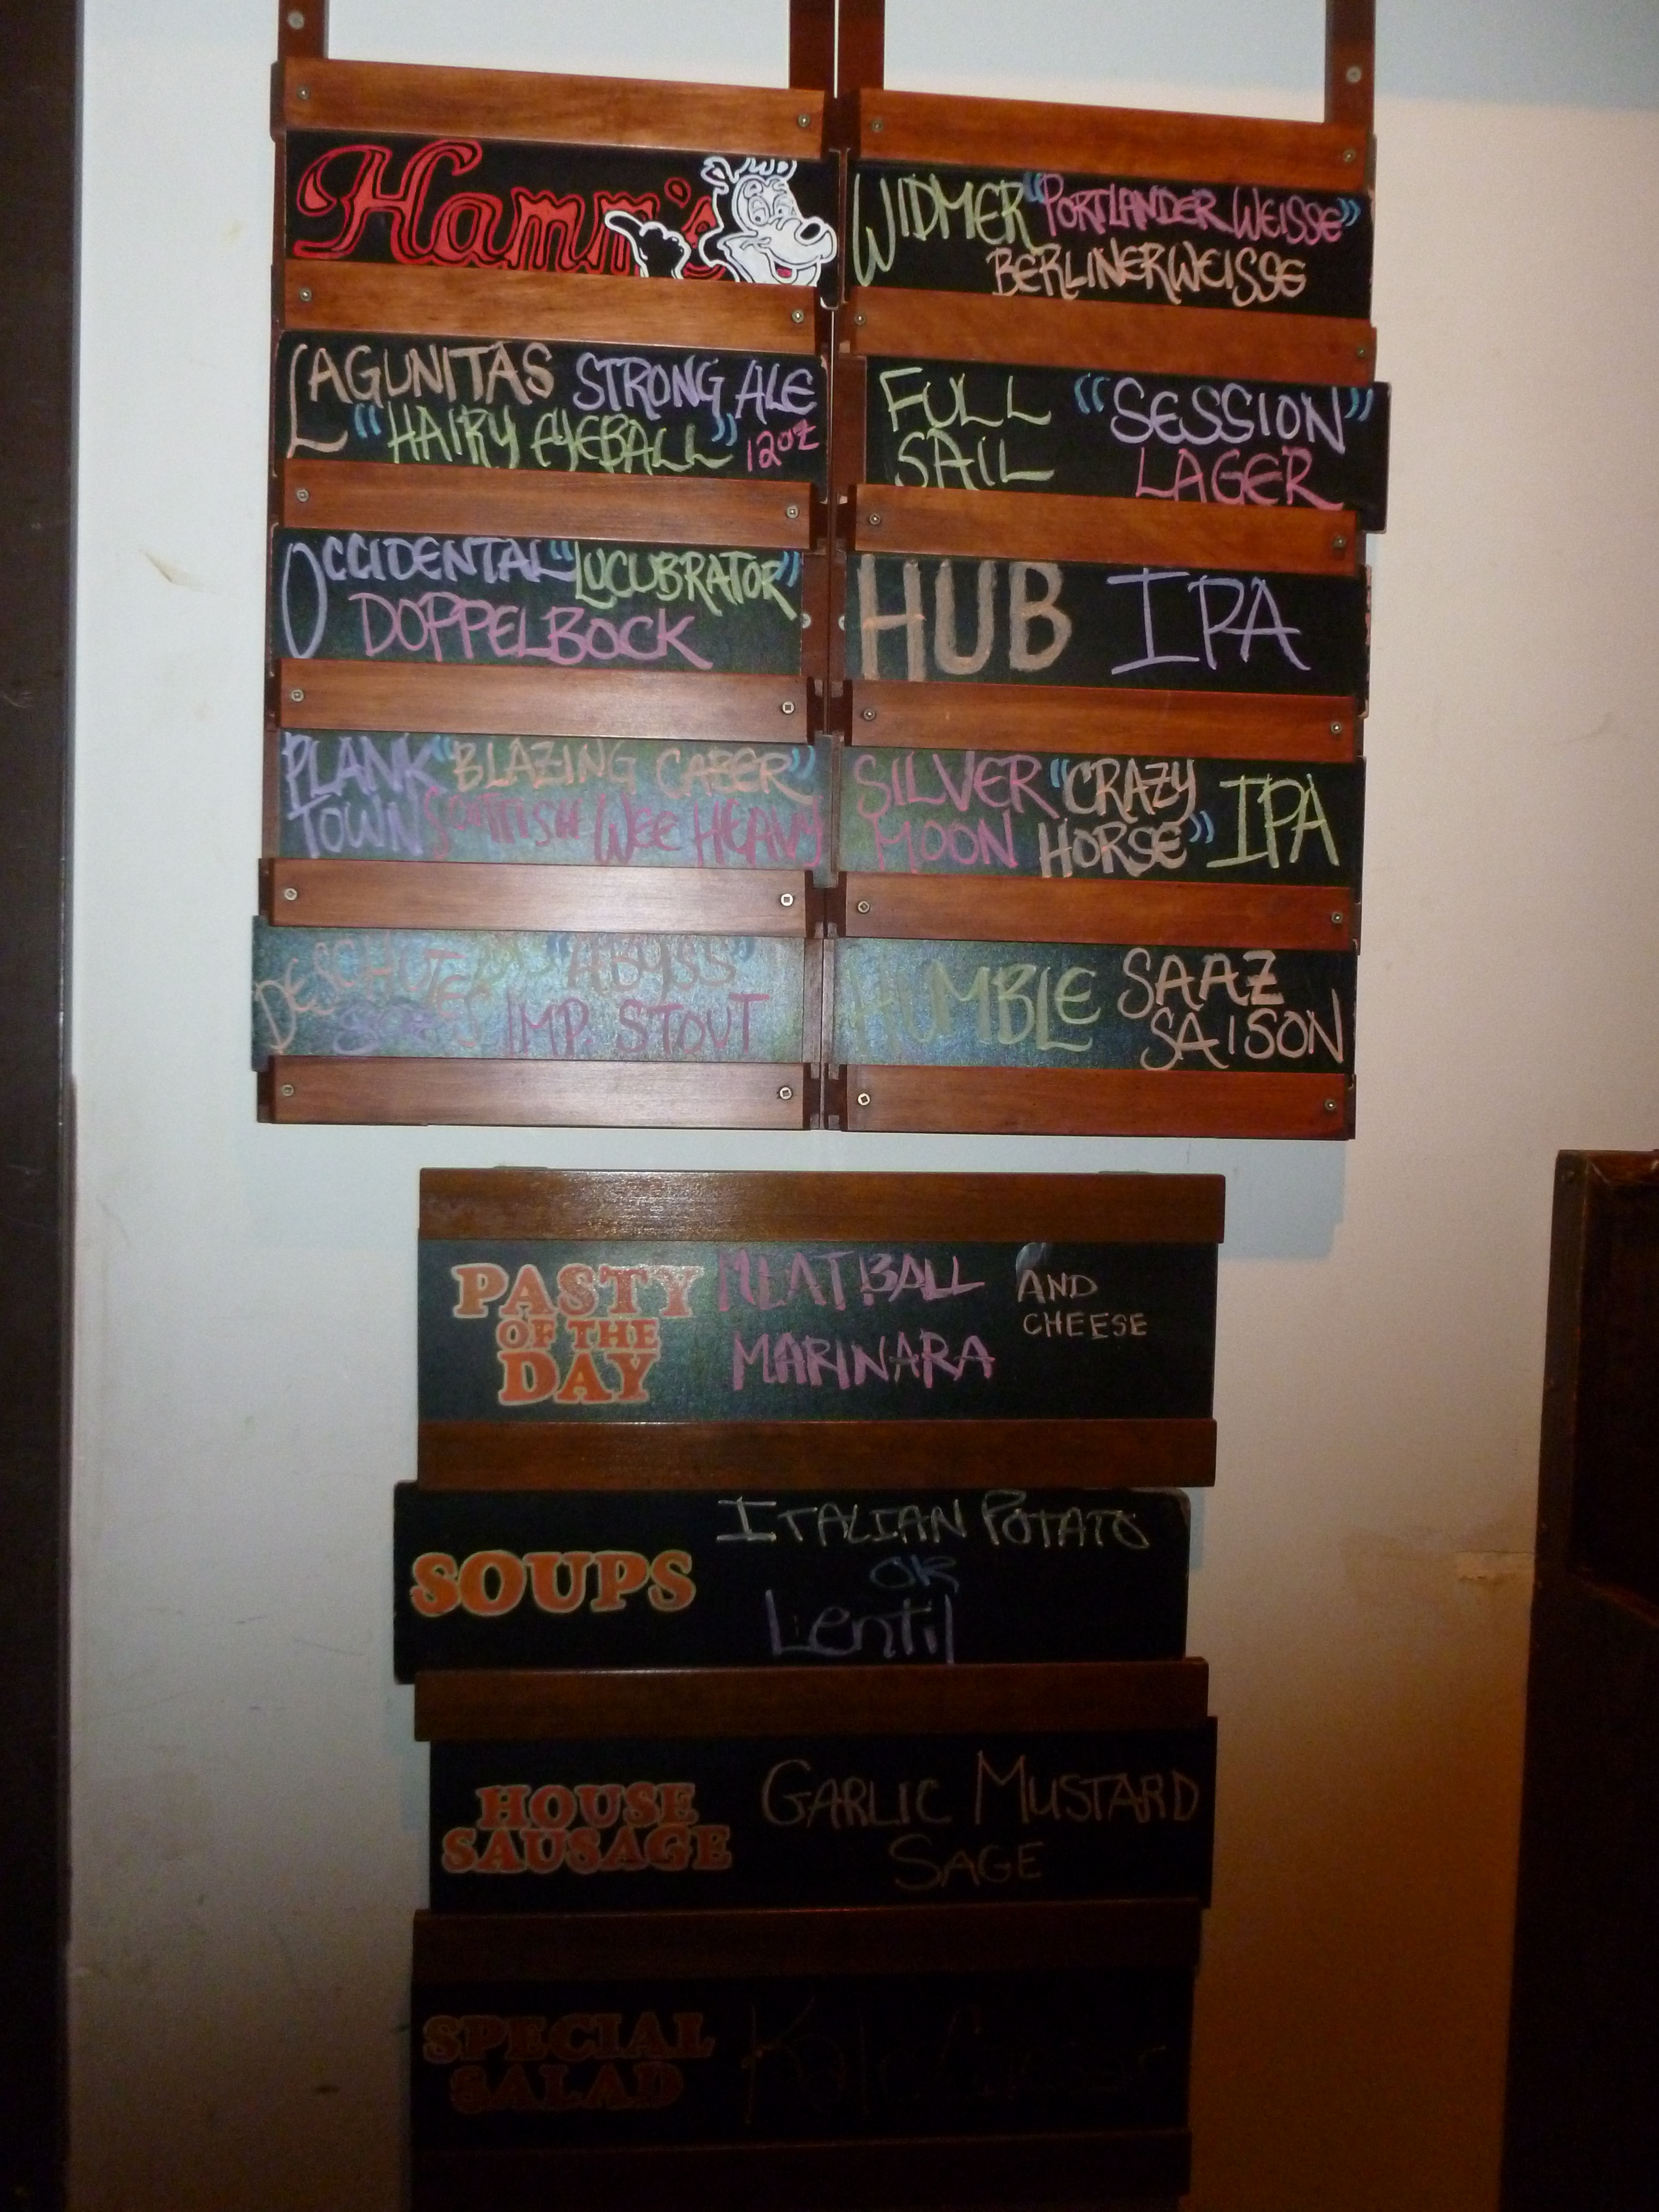 Hamm's
LAGUNITAS STRONG ALE
"HAIRY EYEBALL" 12oz
OCCIDENTAL "LUCUBRATOR"
DOPPELBOCK
PLANK "BLAZING CABER"
TOWN SCOTTISH WEE HEAVY
DESCHUTES "ABYSS"
IMP. STOUT
WIDMER "PORTLANDER WEISSE"
BERLINERWEISSE
FULL "SESSION"
SAIL LAGER
HUB IPA
SILVER "CRAZY IPA
MOON HORSE"
HUMBLE SAAZ
SAISON
PASTY
OF THE
DAY
MEATBALL AND
MARINARA CHEESE
SOUPS
ITALIAN POTATO
OR
Lentil
HOUSE
SAUSAGE
GARLIC MUSTARD
SAGE
SPECIAL
SALAD
Kale Caesar